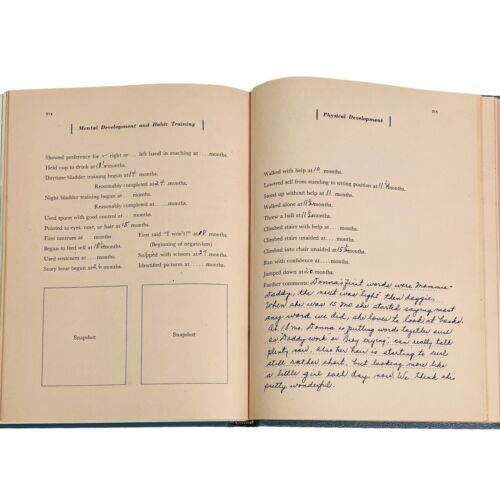 214
Mental Development and Habit Training
Showed preference for ✓ right or ... left hand in reaching at ... months.
Held cup to drink at months.
Daytime bladder training begun at 14 months.
Reasonably completed at 24 months.
Night bladder training begun at months.
Reasonably completed at months.
Used spoon with good control at months.
Pointed to eyes, nose, or hair at 15 months.
First tantrum at months.
First said "I won't!" at 18 months.
(Beginning of negativism)
Began to feed self at months.
Used sentences at months.
Snipped with scissors at 27 months.
Story hour begun at 26 months.
Identified pictures at months.
Snapshot
Snapshot
215
Physical Development
Walked with help at 10 months.
Lowered self from standing to sitting position at 11½ months.
Stood up without help at 11 months.
Walked alone at 11½ months.
Threw a ball at 11½ months.
Climbed stairs with help at months.
Climbed stairs unaided at months.
Climbed into chair unaided at 15½ months.
Ran with confidence at months.
Jumped down at 20 months.
Further comments: Donna's first words were Mommie &
Daddy, the next was light then doggie.
When she was 15 mo she started saying most
any word we did, she loves to look at books.
At 18 mo. Donna is putting words together such
as Daddy work or Baby crying, can really talk
plenty now. Also her hair is starting to curl
still rather short, but looking more like
a little girl each day now. We think she's
pretty wonderful.